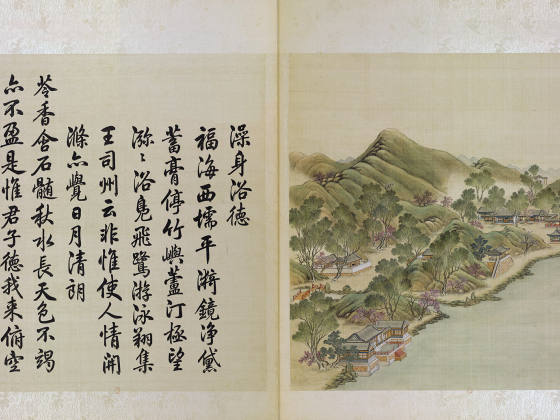 澡身浴德
福海西壖平漪鏡淨黛
蓄膏停竹嶼蘆汀極望
瀰〻浴鳧飛鷺游泳翔集
王司州云非惟使人情開
滌亦覺日月清朗
苓香含石髓秋水長天色不竭
亦不盈是惟君子德我來俯空